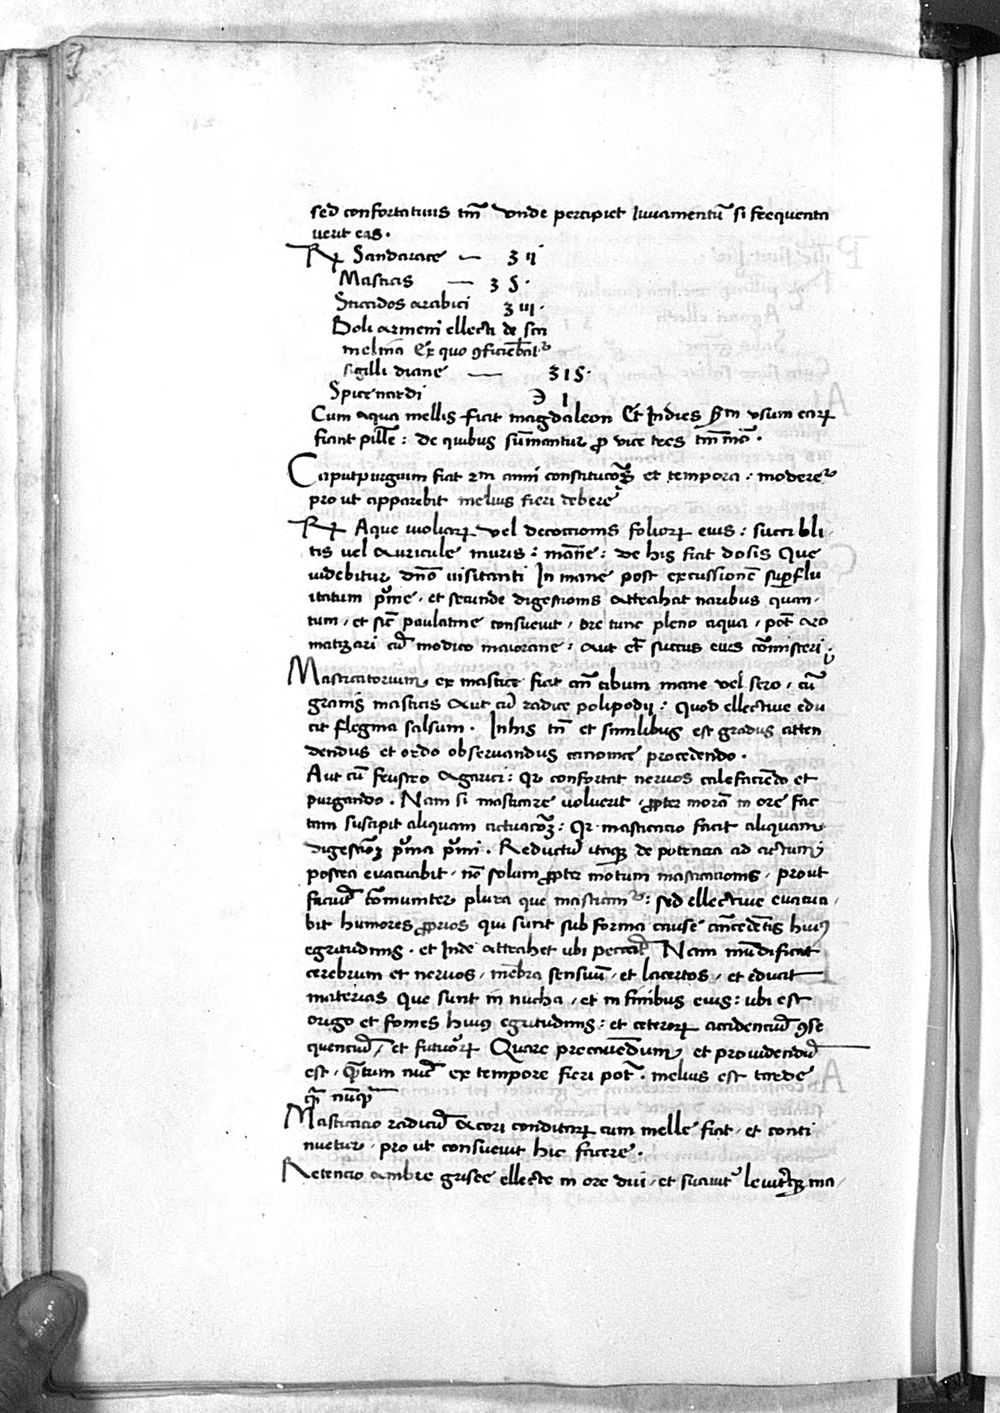 sed confortatiuis tm̄ vnde percipiet Iuuamentū si frequenta
uerit eas .
Rx Sandarace — ʒ ij
Masticis — ʒ ß .
Sticados arabici ʒ iii .
Boli armeni ellecti de
melina Ex quo ꝯficiebat᷑
sigilli diane — ʒ i ß .
Spicenardi ℈ i
Cum aqua mellis fiat magdaleon Et Indies ẜm vsum eaꝝ
fiant pille : de quibus sumantur ꝓ vice tres tm̄
Caputpurgium fiat ẜm anni constitucōꝫ et tempora :
pro ut apparebit melius fieri debere
Rx Aque uiolaꝝ vel decoccionis folioꝝ eius : succi bli
tis uel auricule muris : : de his fiat dosis Que
uidebitur dn̄o uisitanti In mane post excussionē suꝑflu
itatum pͥme . et secunde digestionis attrahat naribus quan
tum / et sic̄ paulatine consueuit / ore tunc pleno aqua / pot̄ aro
matizari cū modico maiorane : aut et̄ succus eius cōmisceri .
Masticatorium ex mastice fiat an̄ cibum mane vel sero / cū
granis masticis aut cū radice polipodij : quod ellectiue edu
cit flegma salsum . In his tn̄ et similibus est gradus atten
dendus et ordo obseruandus canonice procedendo .
Aut cū frustro agarici : qꝛ confortat neruos calefaciēdo et
purgando . Nam si masticare uoluerit / ꝓpter morā in ore fac
tam suscipit aliquam actuacōꝫ : qꝛ masticacio facit aliquam
digestiōꝫ pͥma pͥmi . Reductū itaqꝫ de potencia ad actum
postea euacuabit / nō solum ꝓpter motum masticacionis / prout
faciūt cōmuniter plura que masticant᷑ : sed ellectiue euacua
bit humores ꝓprios qui sunt sub forma cause an̄cedētis huiꝰ
egritudinis . et Inde attrahet ubi peccat Nam mūdificat
cerebrum et neruos / mēbra sensiuū / et lacertos / et educit
materias que sunt in nucha / et in finibus eius : ubi est
origo et fomes huiꝰ egritudinis : et ceteroꝝ accidenciū ꝯse
quenciū / et futuroꝝ Quare precauēdum et prouidendū
est / quātum nūc ex tempore fieri pot̄ . melius est tarde
qͣ̄ nūqͣ̄
Masticacio radicū acori conditaꝝ cum melle fiat / et conti
nuetur / pro ut consueuit hic facere .
Retencio ambre grisee ellecte in ore diu / et suauit᷑ leuit᷑qꝫ ma